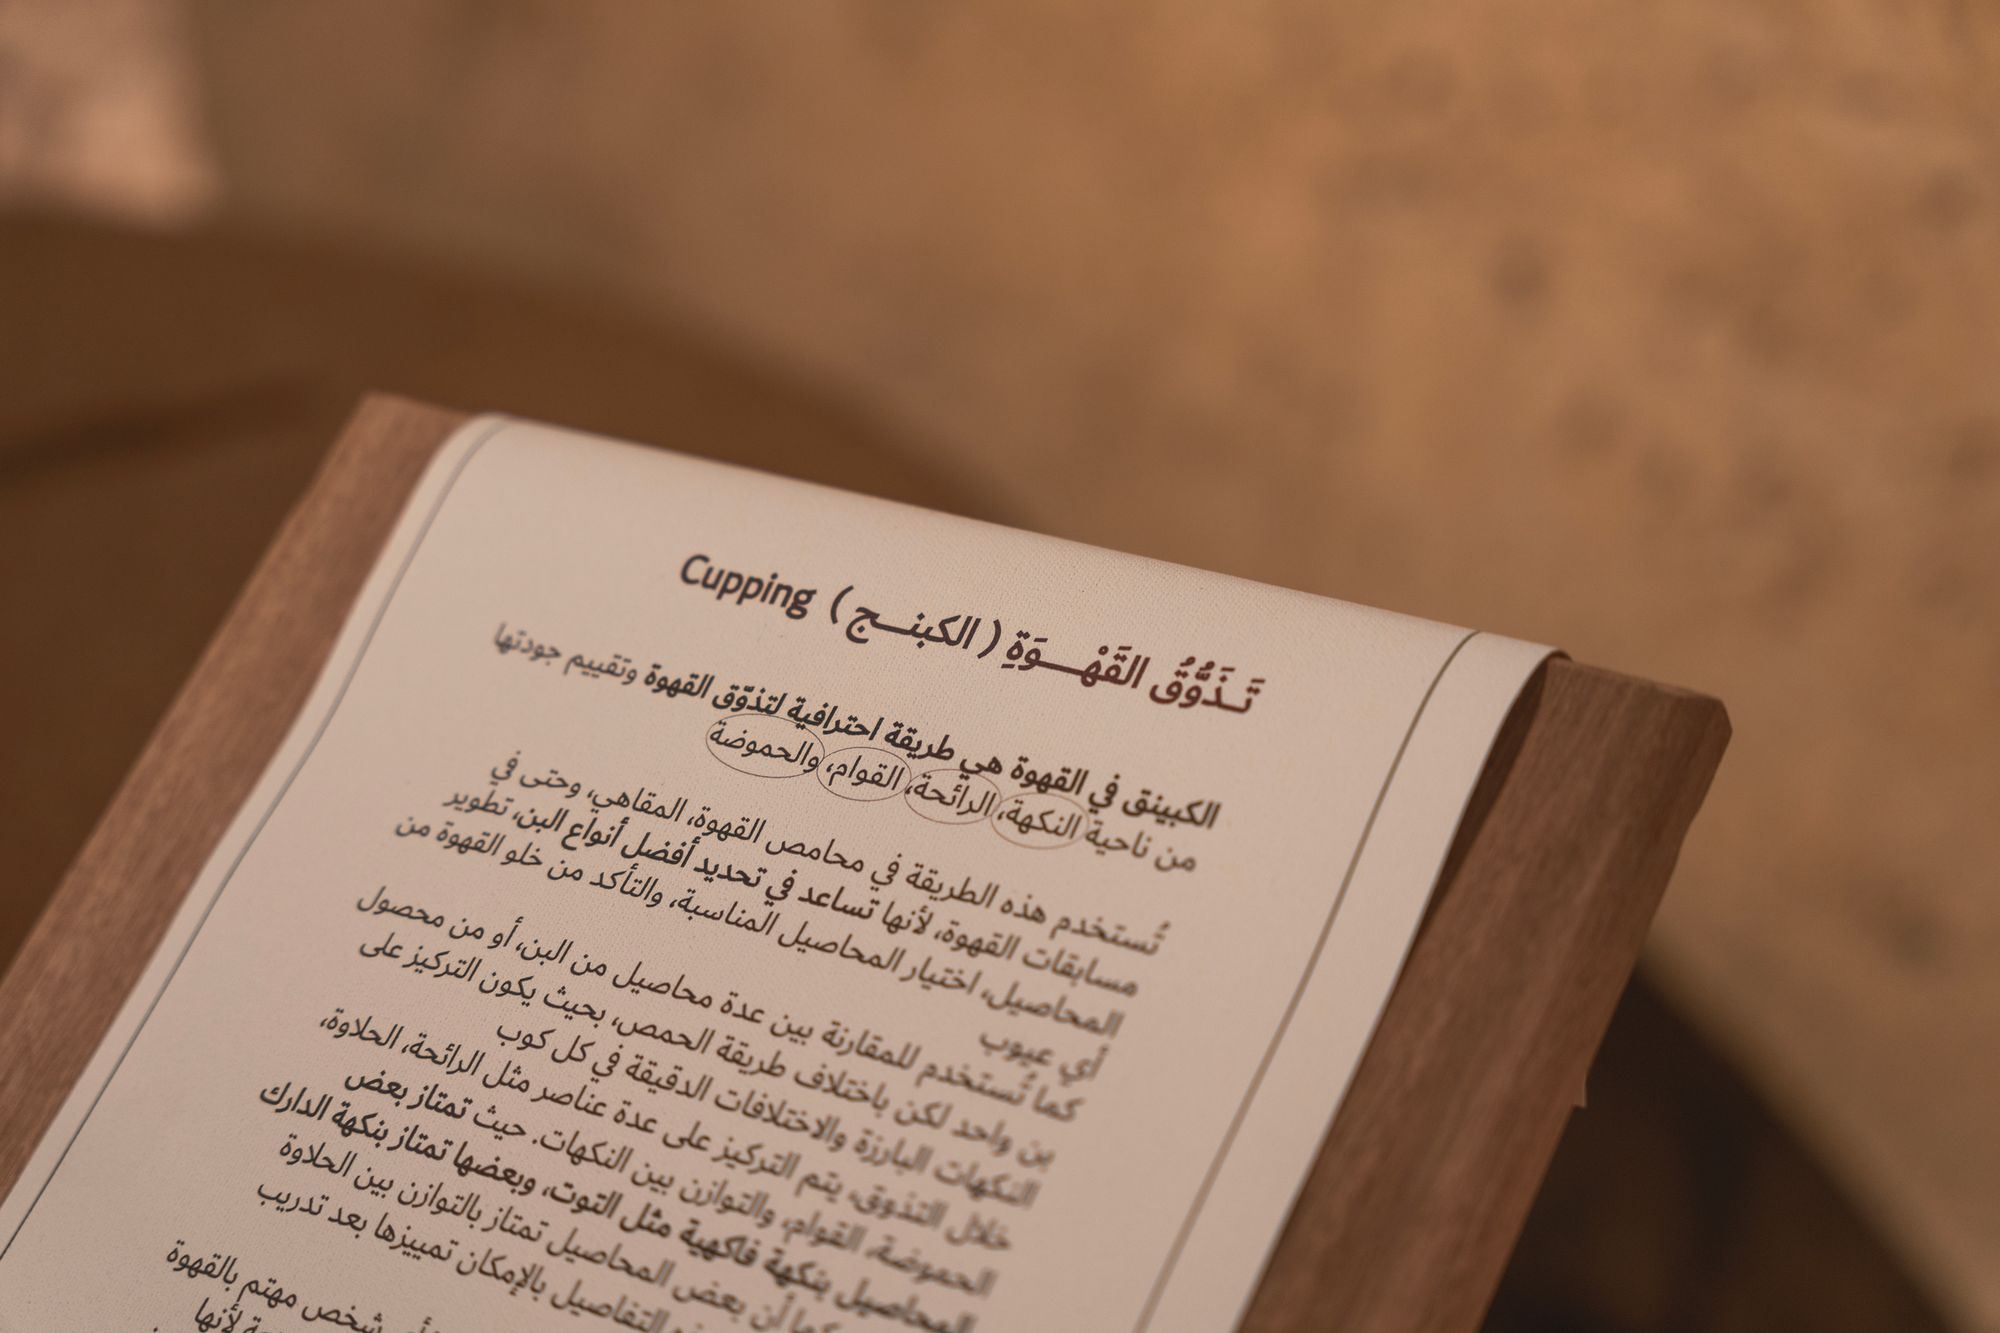 تَـذَوُّقُ القَهْـــوَةِ ( الكبنـــج ) Cupping
الكبينق في القهوة هي طريقة احترافية لتذوّق القهوة وتقييم جودتها
من ناحية النكهة، الرائحة، القوام، والحموضة
تُستخدم هذه الطريقة في محامص القهوة، المقاهي، وحتى في
مسابقات القهوة، لأنها تساعد في تحديد أفضل أنواع البن، تطوير
المحاصيل، اختيار المحاصيل المناسبة، والتأكد من خلو القهوة من
أي عيوب
كما تُستخدم للمقارنة بين عدة محاصيل من البن، أو من محصول
بن واحد لكن باختلاف طريقة الحمص، بحيث يكون التركيز على
النكهات البارزة والاختلافات الدقيقة في كل كوب
خلال التذوق، يتم التركيز على عدة عناصر مثل الرائحة، الحلاوة،
الحموضة، القوام، والتوازن بين النكهات. حيث تمتاز بعض
المحاصيل بنكهة فاكهية مثل التوت، وبعضها تمتاز بنكهة الدارك
كما أن بعض المحاصيل تمتاز بالتوازن بين الحلاوة
التفاصيل بالإمكان تمييزها بعد تدريب
شخص مهتم بالقهوة
لأنها